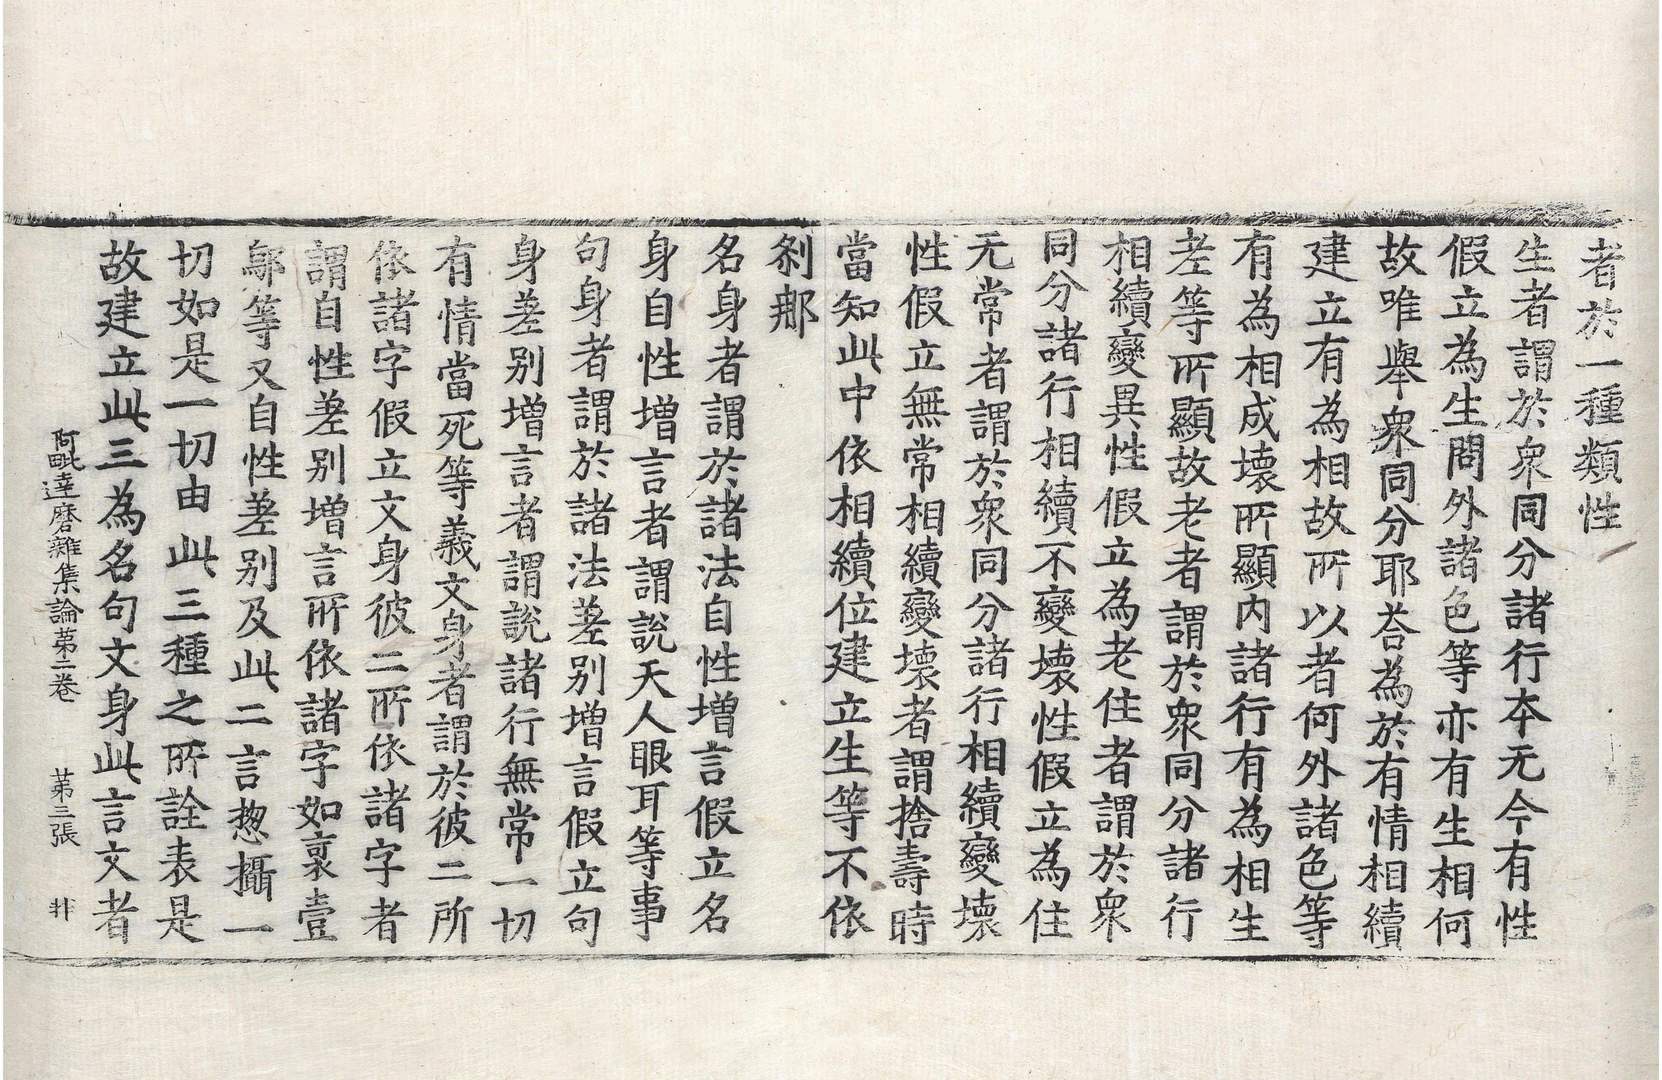 者於一種類性
生者謂於衆同分諸行本无今有性
假立為生問外諸色等亦有生相何
故唯舉衆同分耶荅為於有情相續
建立有為相故所以者何外諸色等
有為相成壞所顯內諸行有為相生
老等所顯故老者謂於衆同分諸行
相續變異性假立為老住者謂於衆
同分諸行相續不變壞性假立為住
无常者謂於衆同分諸行相續變壞
性假立無常相續變壞者謂捨壽時
當知此中依相續位建立生等不依
剎那
名身者謂於諸法自性增言假立名
身自性增言者謂說天人眼耳等事
句身者謂於諸法差別增言假立句
身差別增言者謂說諸行無常一切
有情當死等義文身者謂於彼二所
依諸字假立文身彼二所依諸字者
謂自性差別增言所依諸字如裒壹
鄔等又自性差別及此二言揔攝一
切如是一切由此三種之所詮表是
故建立此三為名句文身此言文者
阿毗達磨雜集論第二卷 第三張 非